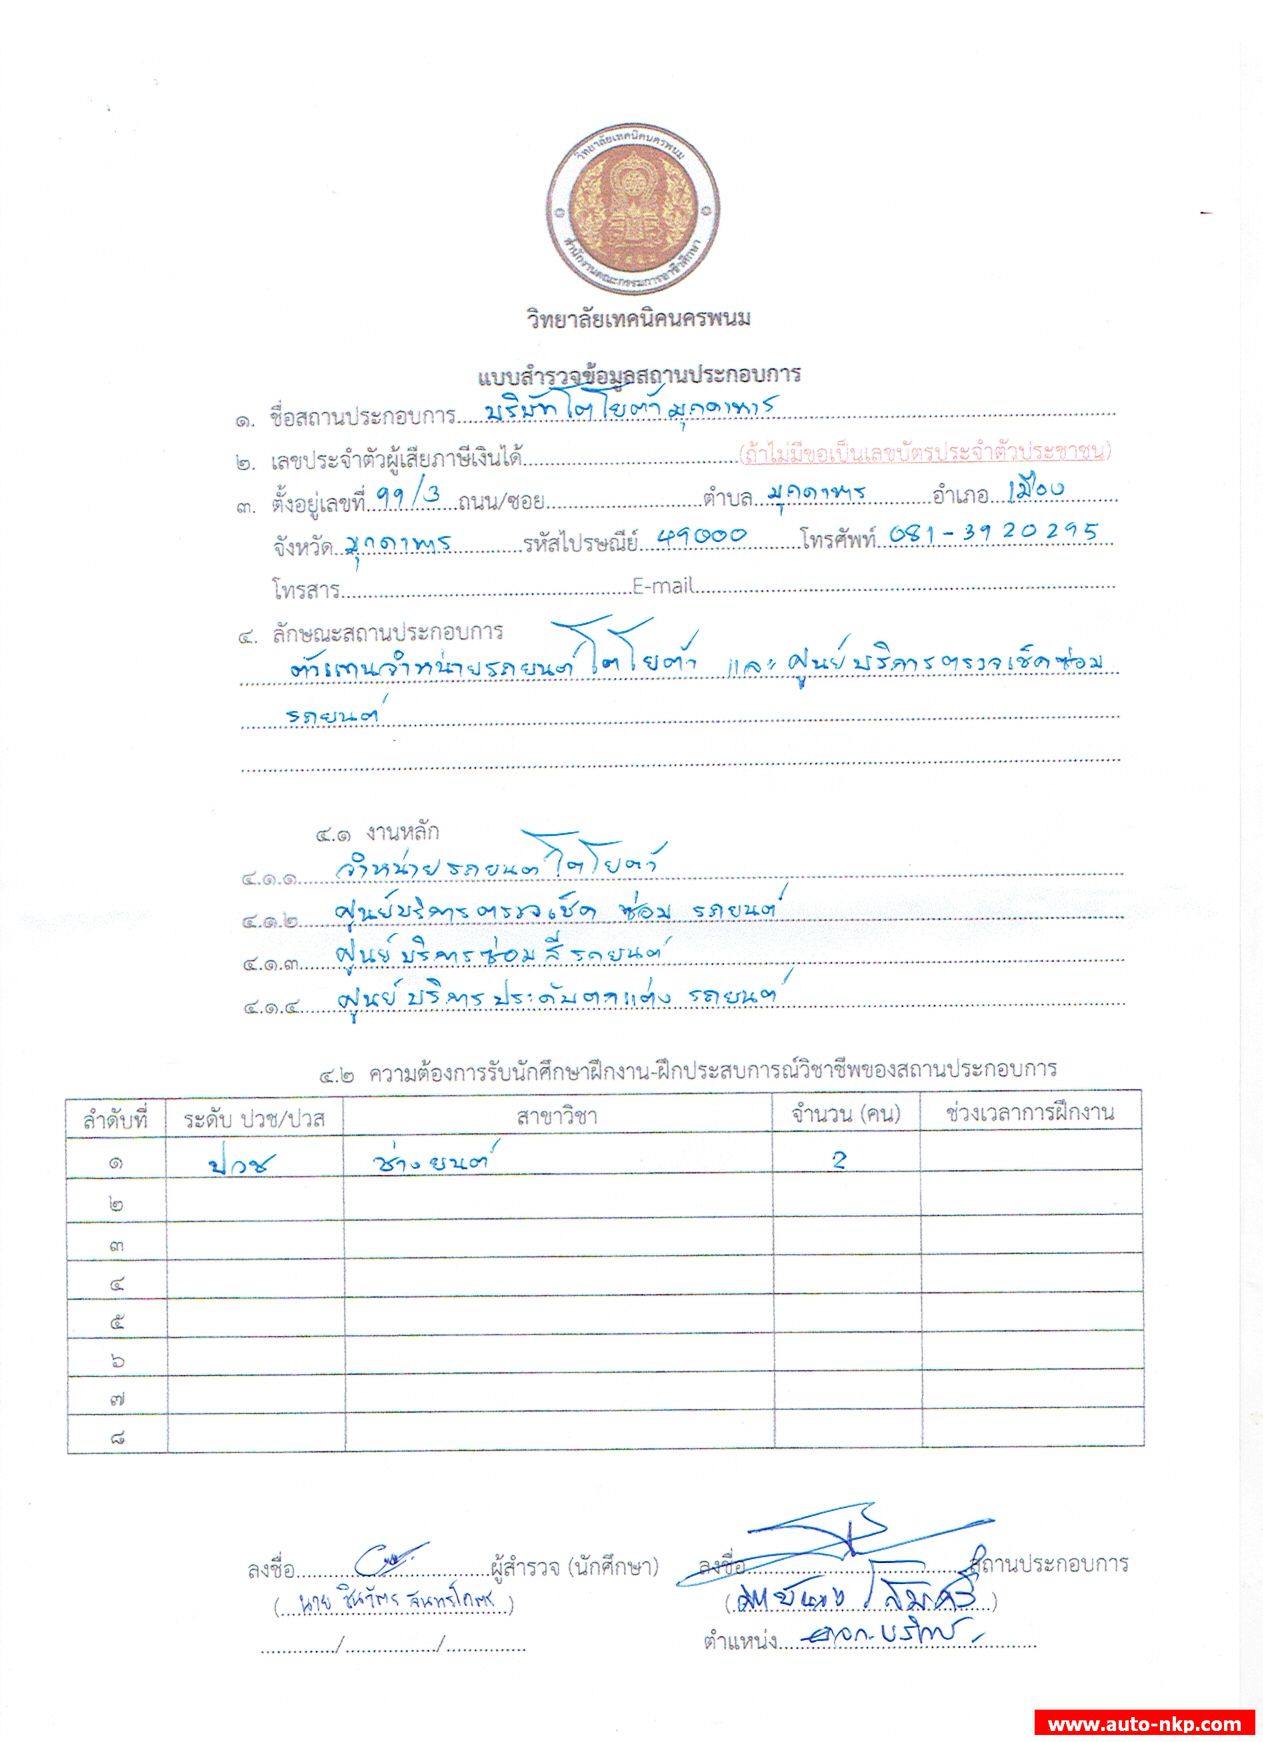 วิทยาลัยเทคนิคนครพนม
สำนักงานคณะกรรมการอาชีวศึกษา
วิทยาลัยเทคนิคนครพนม
แบบสำรวจข้อมูลสถานประกอบการ
๑. ชื่อสถานประกอบการ....บริษัทโตโยต้ามุกดาหาร....
๒. เลขประจำตัวผู้เสียภาษีเงินได้....(ถ้าไม่มีขอเป็นเลขบัตรประจำตัวประชาชน)
๓. ตั้งอยู่เลขที่..99/3..ถนน/ซอย....ตำบล..มุกดาหาร....อำเภอ..เมือง....
จังหวัด..มุกดาหาร....รหัสไปรษณีย์..49000....โทรศัพท์..081-3920295
โทรสาร....E-mail....
๔. ลักษณะสถานประกอบการ
ตัวแทนจำหน่ายรถยนต์โตโยต้า และ ศูนย์บริการตรวจเช็คซ่อม
รถยนต์
๔.๑ งานหลัก
๔.๑.๑....จำหน่ายรถยนต์โตโยต้า
๔.๑.๒....ศูนย์บริการตรวจเช็ค ซ่อม รถยนต์
๔.๑.๓....ศูนย์บริการซ่อมสีรถยนต์
๔.๑.๔....ศูนย์บริการประดับตกแต่ง รถยนต์
๔.๒ ความต้องการรับนักศึกษาฝึกงาน-ฝึกประสบการณ์วิชาชีพของสถานประกอบการ
ลำดับที่ ระดับ ปวช/ปวส สาขาวิชา จำนวน (คน) ช่วงเวลาการฝึกงาน
๑ ปวช ช่างยนต์ 2
๒
๓
๔
๕
๖
๗
๘
ลงชื่อ....ผู้สำรวจ (นักศึกษา) ลงชื่อ....สถานประกอบการ
(นาย ชินวัตร จันทร์โคตร)
....../....../......
ตำแหน่ง....
www.auto-nkp.com